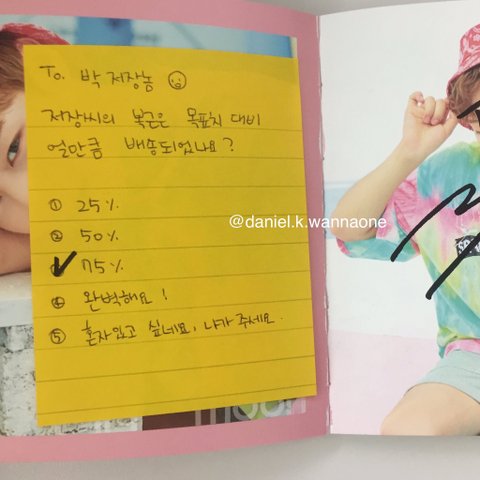 To. 박 저장농
저장씨의 복근은 목표치 대비
얼만큼 배송되었나요?
① 25%
② 50%
✓ 75%
④ 완벽해요!
⑤ 혼자있고 싶네요, 나가 주세요.
@daniel.k.wannaone